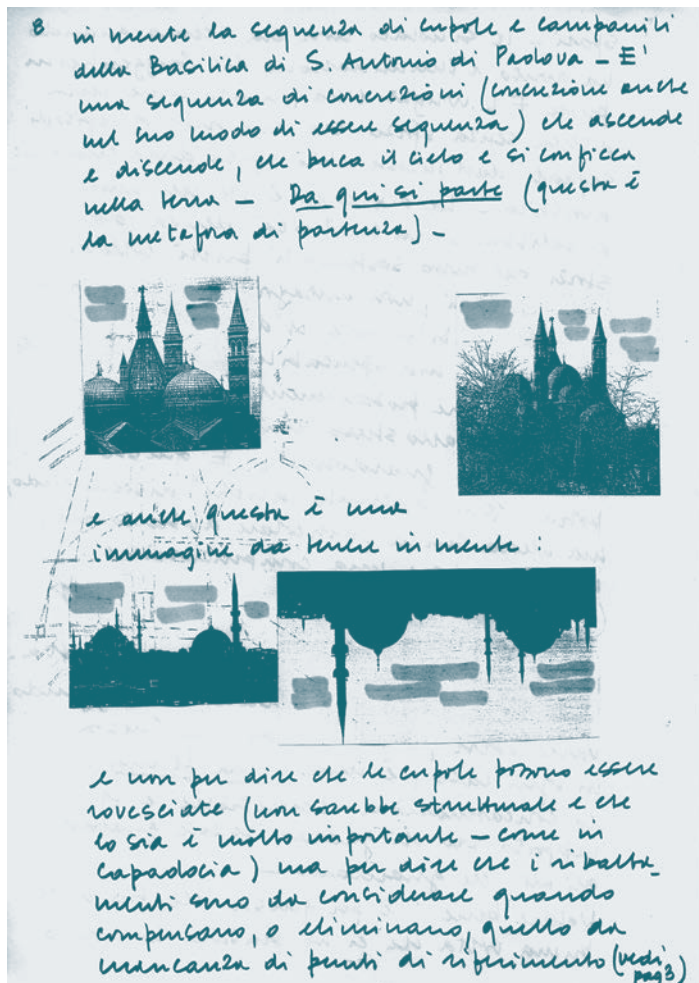 8
in mente la sequenza di cupole e campanili
della Basilica di S. Antonio di Padova – E'
una sequenza di concrezioni (concrezione anche
nel suo modo di essere sequenza) che ascende
e discende, che buca il cielo e si conficca
nella terra – Da qui si parte (questa è
la metafora di partenza) –
e anche questa è una
immagine da tenere in mente :
e non per dire che le cupole possono essere
rovesciate (non sarebbe strutturale e che
lo sia è molto importante – come in
Capadocia) ma per dire che i ribalta-
menti sono da considerare quando
compensano, o eliminano, quello da
mancanza di punti di riferimento (vedi
pag 3)